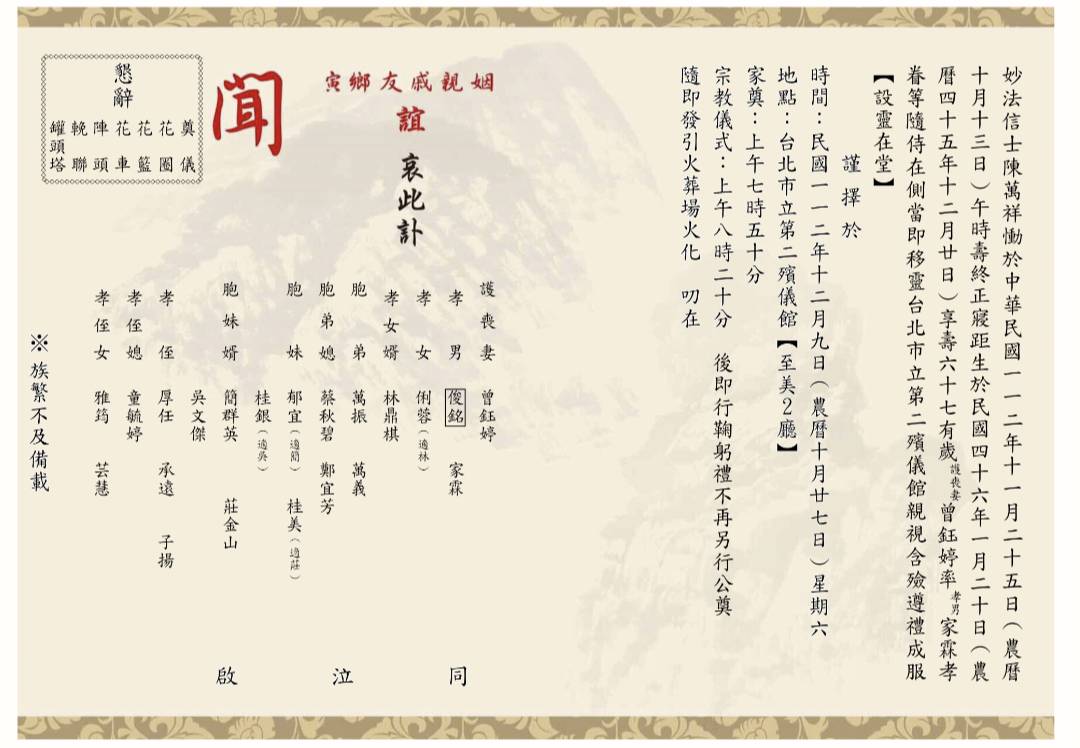 妙法信士陳萬祥慟於中華民國一一二年十一月二十五日（農曆
十月十三日）午時壽終正寢距生於民國四十六年一月二十日（農
曆四十五年十二月廿日）享壽六十七有歲護喪妻曾鈺婷率孝男家霖孝
眷等隨侍在側當即移靈台北市立第二殯儀館親視含殮遵禮成服
【設靈在堂】
謹擇於
時間：民國一一二年十二月九日（農曆十月廿七日）星期六
地點：台北市立第二殯儀館【至美2廳】
家奠：上午七時五十分
宗教儀式：上午八時二十分 後即行鞠躬禮不再另行公奠
隨即發引火葬場火化 叨在
姻親戚友鄉寅
誼
哀此訃
聞
懇辭
奠儀
花圈
花籃
花車
陣頭
輓聯
罐頭塔
護喪妻 曾鈺婷
孝男 俊銘 家霖
孝女 俐蓉（適林）
孝女婿 林鼎棋
胞弟 萬振 萬義
胞弟媳 蔡秋碧 鄭宜芳
胞妹 郁宜（適簡） 桂美（適莊）
桂銀（適吳）
胞妹婿 簡群英 莊金山
吳文傑
孝侄 厚任 承遠 子揚
孝侄媳 童毓婷
孝侄女 雅筠 芸慧
同泣啟
※族繁不及備載